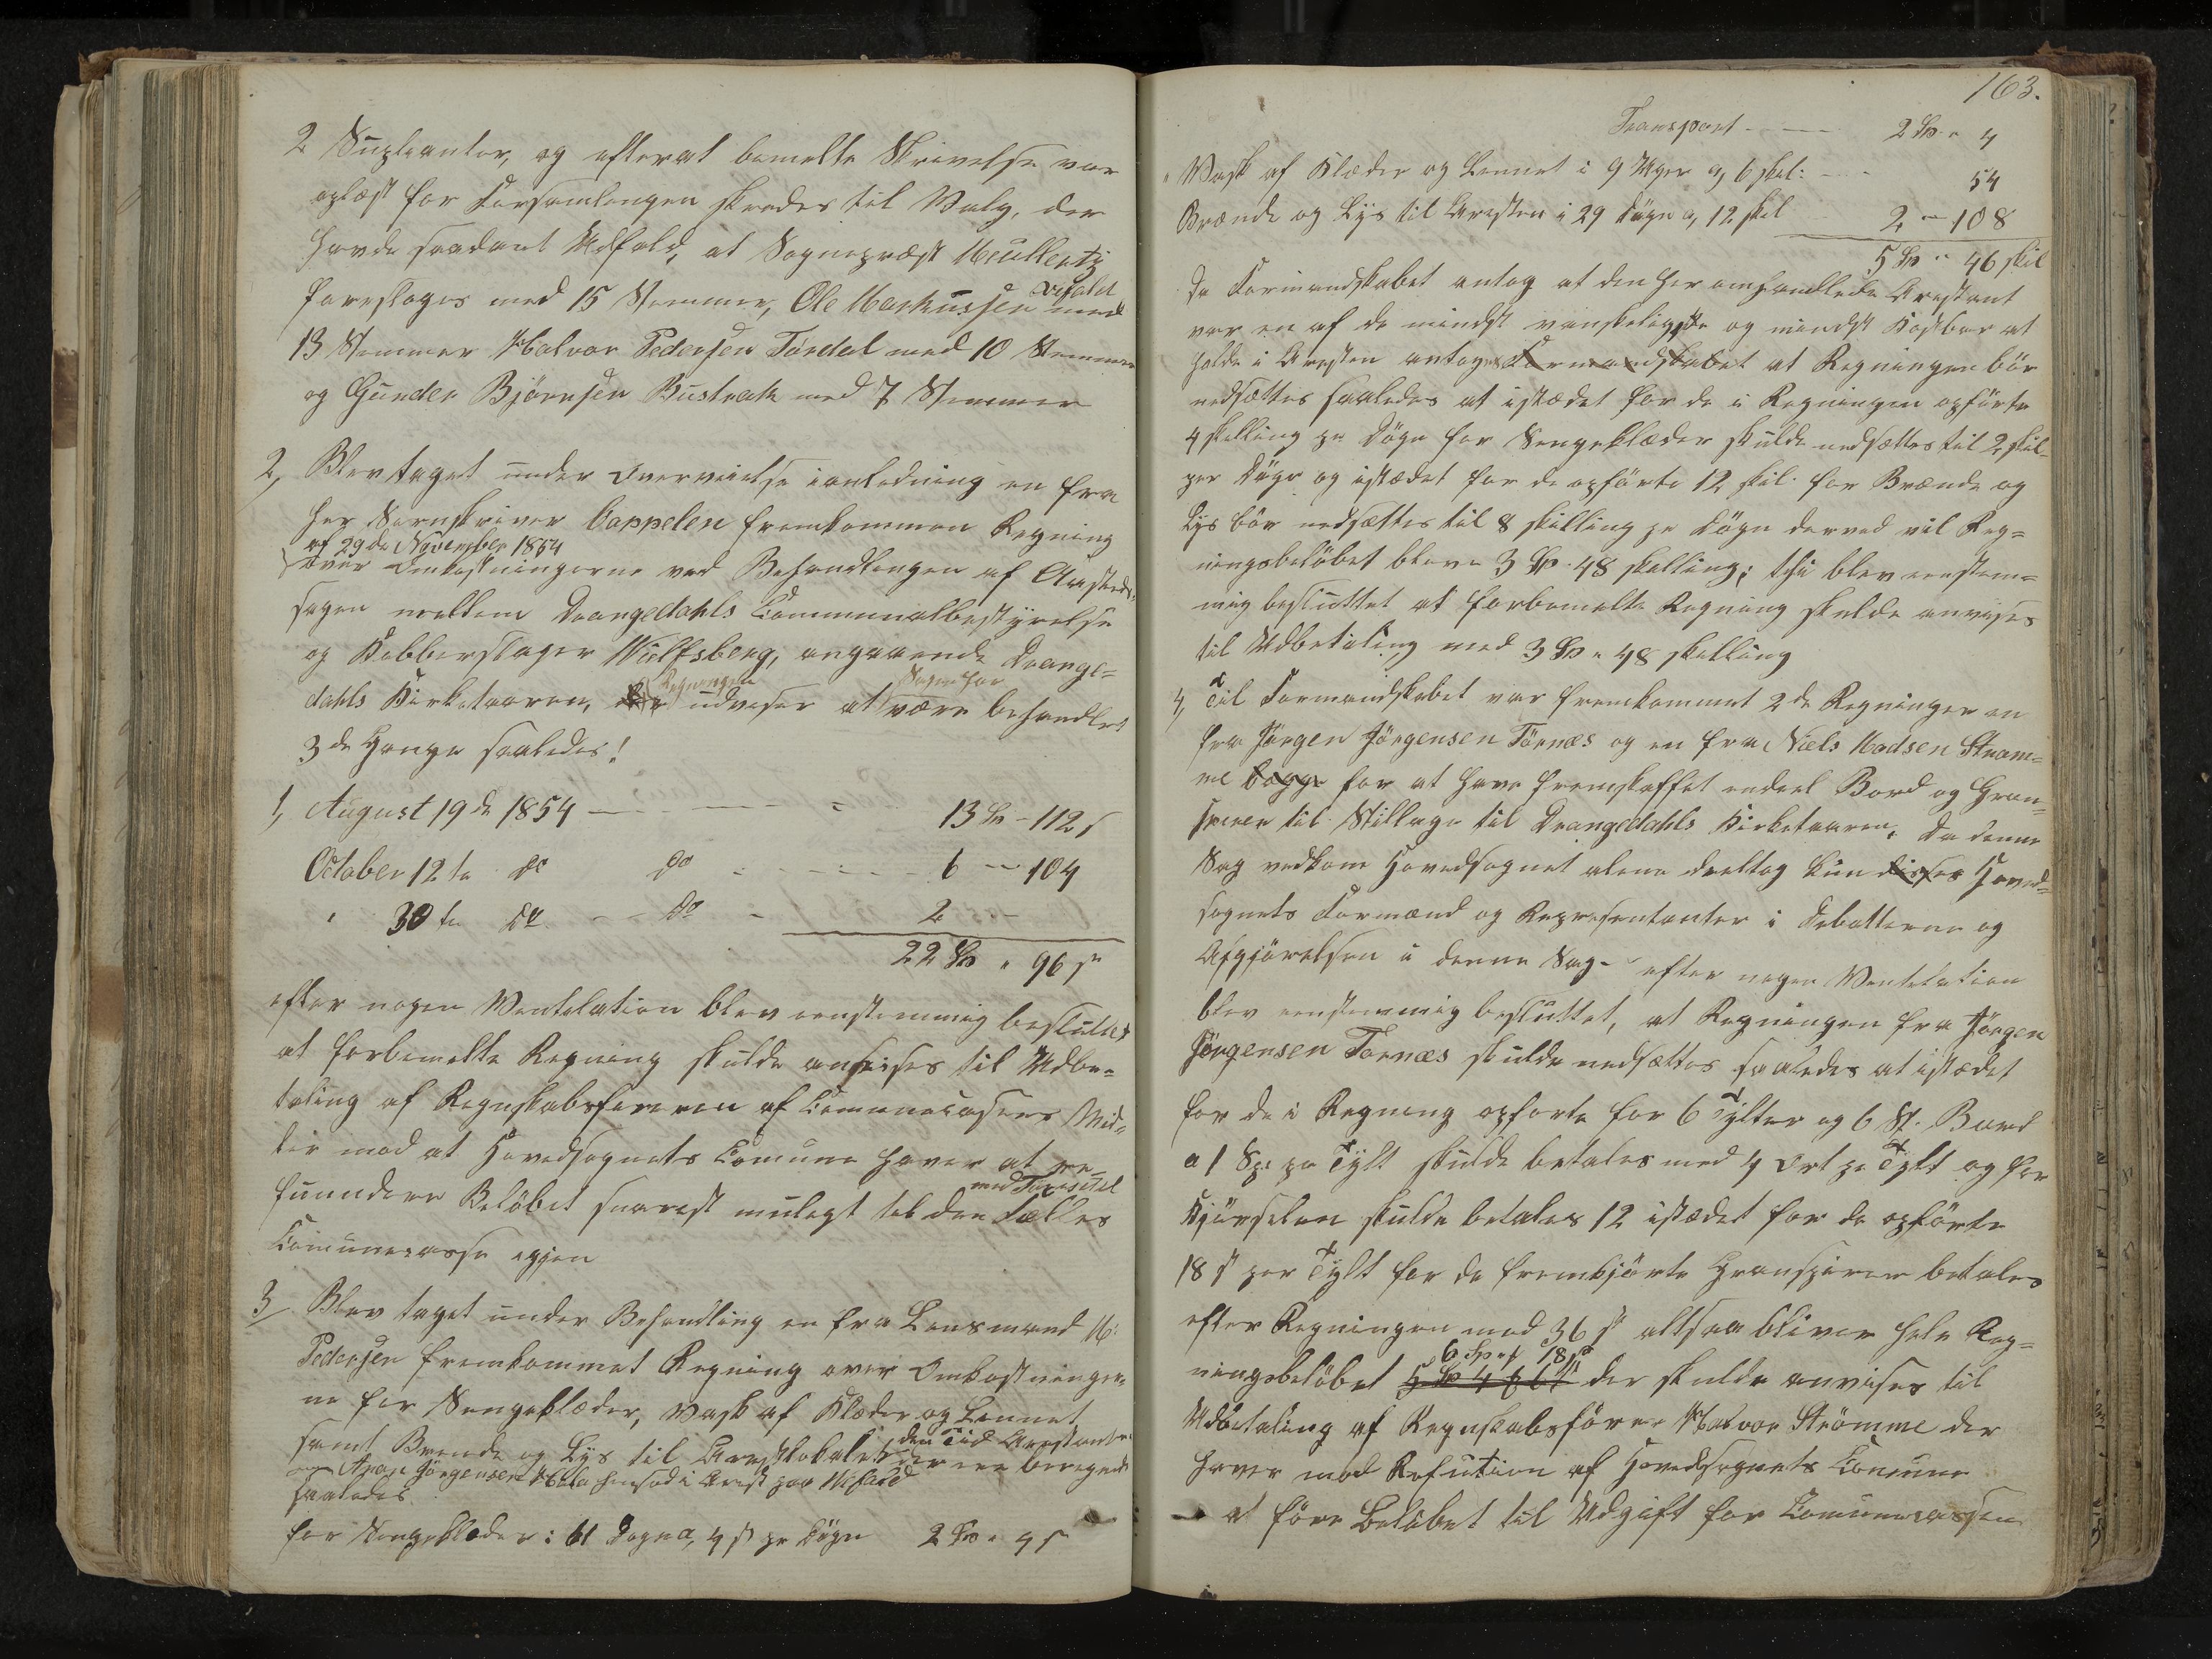 2 Supleanter, og efterat bemelte Skrivelse var
oplæst for Forsamlingen skredes til Valg, der
havde saadant Udfald, at Sognepræst Meullertz
foresloges med 15 Stemmer, Ole Markussen Vefald med
13 Stemmer Halvor Pedersen Tørdal med 10 Stemmer
og Gunder Bjørnsen Bustrak med 7 Stemmer
2, Blev taget under Overveielse ianledning en fra
Her Sornskriver Cappelen fremkommen Regning
af 29de November 1854
over Omkostningerne ved Behandlingen af Austeds-
sagen mellem Drangedahls Communalbestyrelse
og Kobberslager Wulfsberg, angaaende Drange=
Regningen Sagen for
dahls Kirketaaren, der udviser at være behandlet
3de Gange saaledes!
1, August 19de 1854 — — — = 13 Sp - 112 s
October 12te do do - - - 6 - 104
" 30te do - - do - 2 " -
22 Sp " 96 s
efter nogen Ventelation blev eenstemmig besluttet
at forbemelte Regning skulde anvises til Udbe=
taling af Regnskabsføreren af Communecassens Mid=
ler mod at Hovedsognets Comune haver at re=
med Tidescuel
funndere Beløbet snarest mulegt til den Fælles
Comunecasse igjen
3, Blev taget under Behandling en fra Lensmand H:
Pedersen fremkommet Regning over Omkostninger=
ne for Sengeklæder, Vask af Klæder og Lennet
samt Brende og Lys til Arestlokalet den Tid Arestanten
Anan Jörgensen Holte hensad i Arest paa Vefald der ere beregnet
saaledes
for Sengeklæder: 61 Døgn a, 4 s pr Døgn 2 Sp " 4 s
163.
Transport - — 2 Sp " 4
" Vask af Klæder og Lennet i 9 Uger a, 6 skil: - - 54
Brænde og Lys til Aresten i 29 Døgn a, 12 skil 2 - 108
5 Sp " 46 skil
Da Formandskabet antog at den her omhandlede Arestant
var en af de mindst vanskeligste og mindst Kostbar at
holde i Aresten antoges Formandskabet at Regningen bör
nedsættes saaledes at istædet for de i Regningen opförte
4 skilling pr Dögn for Sengeklæder skulde nedsættes til 2 skil-
per Dögn og istædet for de opförte 12 skil. for Brænde og
Lys bör nedsættes til 8 skilling pr Dögn derved vil Reg=
ningsbelöbet bleve 3 Sp. 48 skilling; thi blev eenstem=
mig besluttet at forbemelte Regning skulde anvises
til Udbetaling med 3 Sp " 48 skilling
4, Til Formandskabet var fremkommet 2de Regninger en
fra Jörgen Jörgensen Törnæs og en fra Niels Madsen Ström=
me begge for at have fremskaffet endeel Bord og Gran=
spirer til Stillage til Drangedahls Kirketaaren. Da denne
Sag vedkom Hovedsognet alene deeltog kun disses Hoved=
sognets Formænd og Representanter i Debatterne og
Afgjörelsen i denne Sag - efter nogen Ventelation
blev eenstemmig besluttet, at Regningen fra Jörgen
Jörgensen Tornæs skulde nedsættes saaledes at istædet
for de i Regning opforte for 6 Tylter og 6 St. Bord
a 1 Sp: pr Tylt skulde betales med 4 Ort pr Tylt og for
Kjörselen skulde betales 12 istædet for de opförte
18 s per Tylt for de fremkjörte Granspirer betales
efter Regningen med 36 s altsaa bliver hele Reg=
6 Sp " 18 s
ningsbelöbet der skulde anvises til
Udbetaling af Regnskabsförer Halvor Strömme der
haver mod Refution af Hovedsognets Comune
at före Belöbet til Udgift for Comunecassen